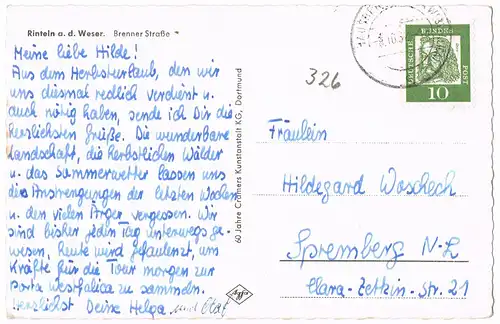 Rinteln a. d. Weser. Brenner Straße
326
DEUTSCHE
BUNDES
POST
10
Meine liebe Hilde!
Aus dem Herbsturlaub, den wir
uns diesmal redlich verdient u.
auch nötig haben, sende ich Dir die
herzlichsten Grüße. Die wunderbare
Landschaft, die herbstlichen Wälder
u. das Sommerwetter lassen uns
die Anstrengungen der letzten Wochen
u. den vielen Ärger vergessen. Wir
sind bisher jeden Tag unterwegs ge-
wesen, heute wird gefaulenzt, um
Kräfte für die Tour morgen zur
Porta Westfalica zu sammeln.
Herzlichst Deine Helga und Olaf
60 Jahre Cramers Kunstanstalt KG, Dortmund
Agfa
Fräulein
Hildegard Woschech
Spremberg N-L
Clara-Zetkin-Str. 21